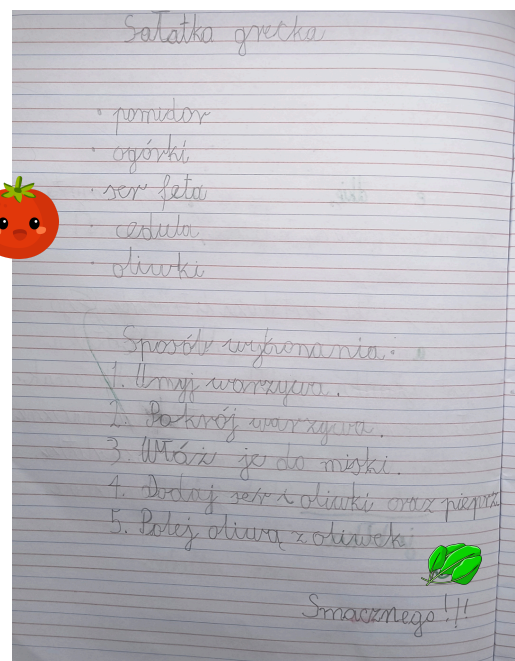 Sałatka grecka
• pomidor
• ogórki
• ser feta
• cedula
• oliwki
Sposób wykonania:
1. Umyj warzywa.
2. Pokrój warzywa.
3. Włóż je do miski.
4. Dodaj ser i oliwki oraz pieprz
5. Polej oliwą z oliwek
Smacznego!!!